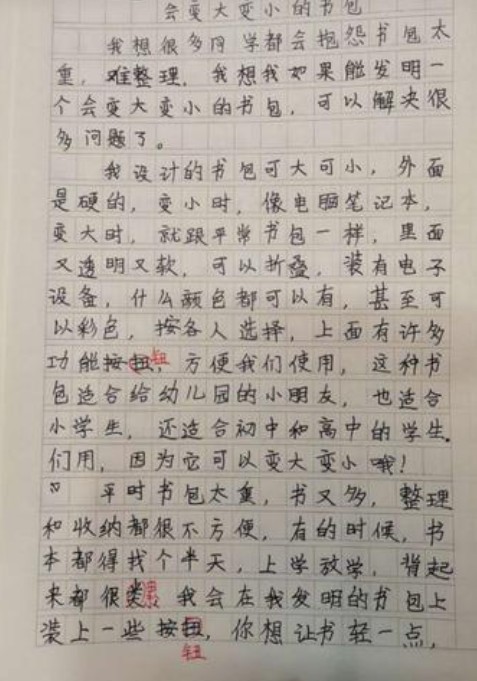 会变大变小的书包
我想很多同学都会抱怨书包太
重，难整理，我想我如果能发明一
个会变大变小的书包，可以解决很
多问题了。
我设计的书包可大可小，外面
是硬的，变小时，像电脑笔记本，
变大时，就跟平常书包一样，里面
又透明又软，可以折叠，装有电子
设备，什么颜色都可以有，甚至可
以彩色，按各人选择，上面有许多
功能按钮，方便我们使用，这种书
包适合给幼儿园的小朋友，也适合
小学生，还适合初中和高中的学生
们用，因为它可以变大变小哦！
平时书包太重，书又多，整理
和收纳都很不方便，有的时候，书
本都得找个半天，上学放学，背起
来都很累。我会在我发明的书包上
装上一些按钮，你想让书轻一点，